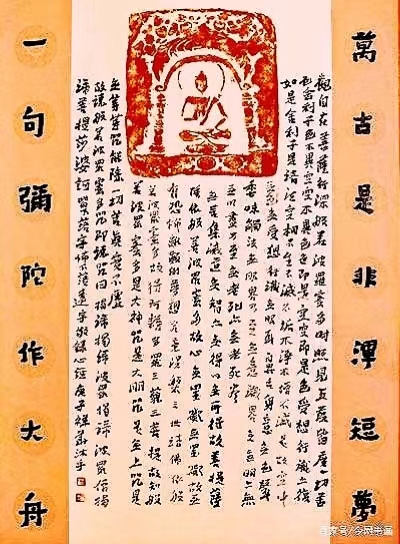 萬古是非渾短夢
觀自在菩薩行深般若波羅蜜多時照見五蘊皆空度一切苦
厄舍利子色不異空空不異色色即是空空即是色受想行識亦復
如是舍利子是諸法空相不生不滅不垢不淨不增不減是故空中
無色無受想行識無眼耳鼻舌身意無色聲
香味觸法無眼界乃至無意識界無無明亦無
無明盡乃至無老死亦無老死盡
無苦集滅道無智亦無得以無所得故菩提薩
埵依般若波羅蜜多故心無罣礙無罣礙故無
有恐怖遠離顛倒夢想究竟涅槃三世諸佛依般
若波羅蜜多故得阿耨多羅三藐三菩提故知般
若波羅蜜多是大神咒是大明咒是無上咒是
無等等咒能除一切苦真實不虛
故說般若波羅蜜多咒即說咒曰揭諦揭諦波羅揭諦波羅僧揭
諦菩提莎婆訶 敬錄心經庚子
一句彌陀作大舟
百家号/今网书画